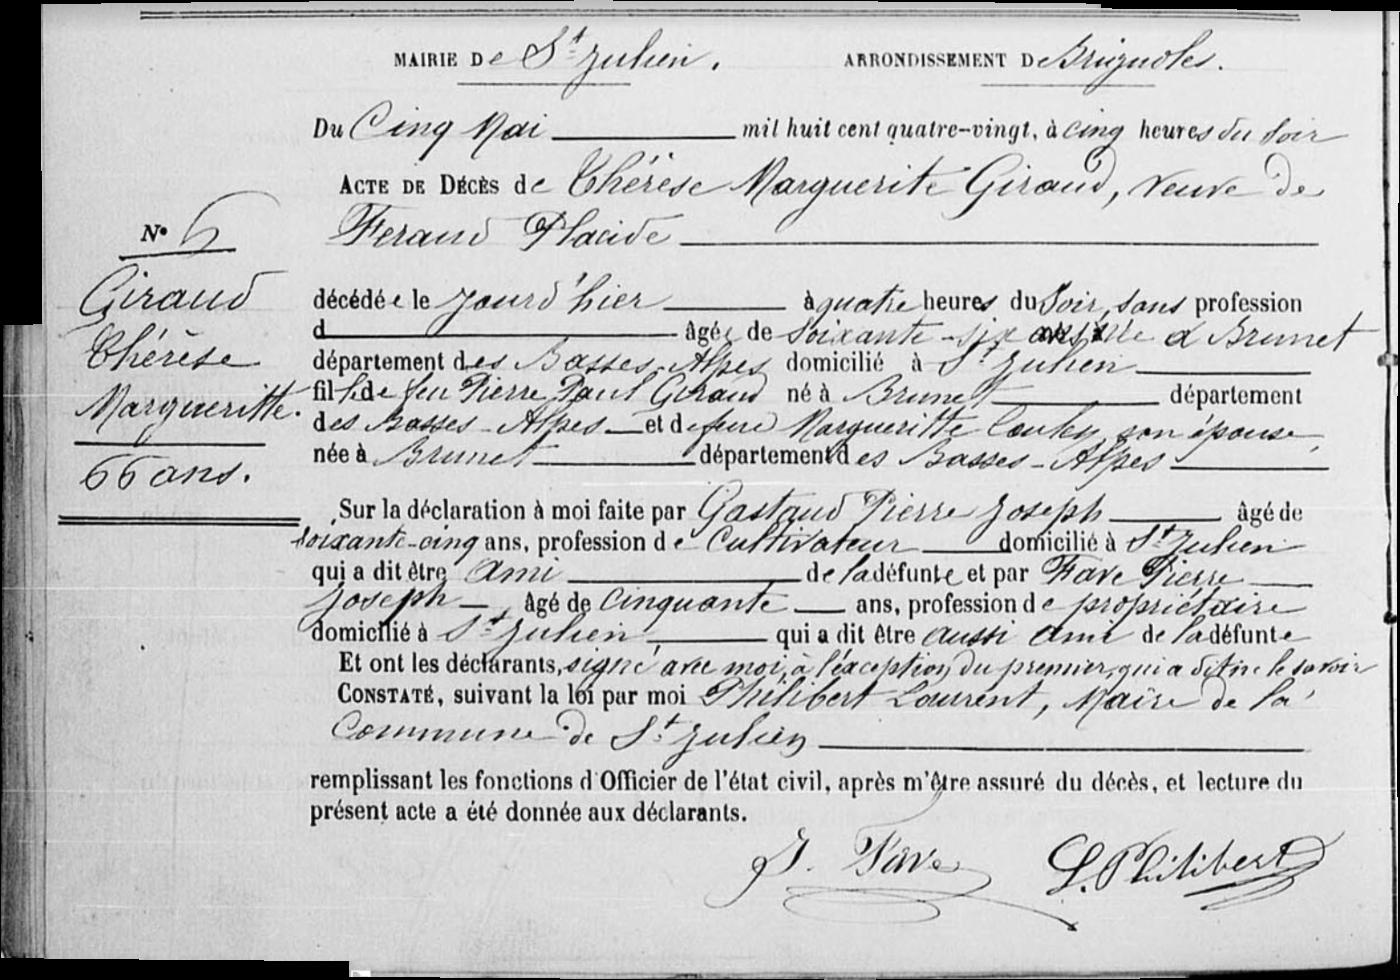 MAIRIE De St Julien. ARRONDISSEMENT De Brignoles.
Du Cinq Mai mil huit cent quatre-vingt, à cinq heures du soir
ACTE DE DÉCÈS de Thérèse Marguerite Giraud, veuve de
Feraud Placide
N° 5
Giraud
Thérèse
Margueritte.
66 ans.
décédée le jourd'hier à quatre heures du Soir, sans profession
d âgée de soixante-six ans née à Brunet
département des Basses-Alpes domicilié à St Julien
fille de feu Pierre Paul Giraud né à Brunet département
des Basses-Alpes et de feue Margueritte son épouse
née à Brunet département des Basses-Alpes
Sur la déclaration à moi faite par Gastaud Pierre Joseph âgé de
soixante-cinq ans, profession de Cultivateur domicilié à St Julien
qui a dit être Ami de la défunte et par Fave Pierre
Joseph, âgé de cinquante ans, profession de propriétaire
domicilié à St Julien, qui a dit être aussi ami de la défunte
Et ont les déclarants, signé avec moi, à l'éxception du premier, qui a dit ne le savoir
CONSTATÉ, suivant la loi par moi Philibert Laurent, Maire de la
Commune de St Julien
remplissant les fonctions d'Officier de l'état civil, après m'être assuré du décès, et lecture du
présent acte a été donnée aux déclarants.
J. Fave L. Philibert